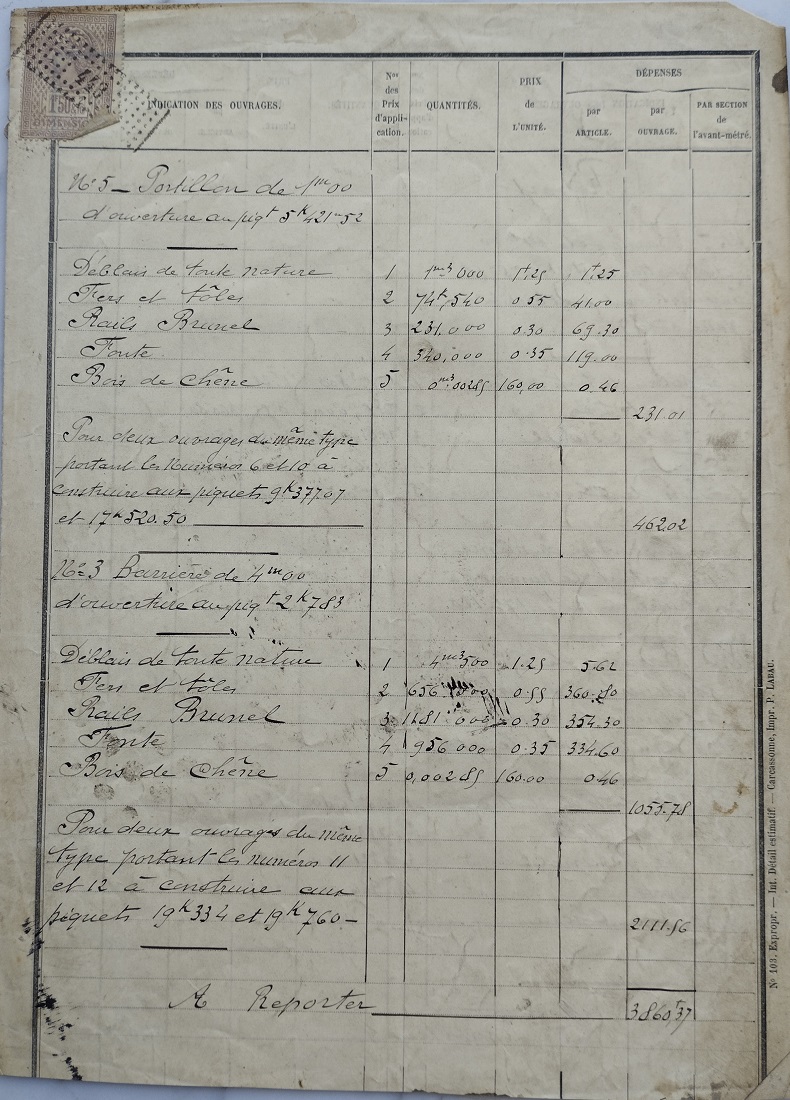 1F50c
DIMENSION
INDICATION DES OUVRAGES.
Nos des Prix d'appli-cation.
QUANTITÉS.
PRIX de L'UNITÉ.
DÉPENSES
par ARTICLE.
par OUVRAGE.
PAR SECTION de l'avant-métré.
N° 5 - Portillon de 1m00
d'ouverture au piqt 5K421m52
Déblais de toute nature 1 1m3000 1f.25 1f.25
Fers et tôles 2 74K,540 0.55 41.00
Rails Brunel 3 231.000 0.30 69.30
Fonte 4 340,000 0.35 119.00
Bois de chêne 5 0m3.00285 160,00 0.46
231.01
Pour deux ouvrages du même type
portant les Numéros 6 et 10 à
construire aux piquets 9K377.07
et 17K520.50 462.02
N° 3 Barrière de 4m00
d'ouverture au piqt 2K783
Déblais de toute nature 1 4m3500 1.25 5.62
Fers et tôles 2 656 0.55 360.80
Rails Brunel 3 1181.000 0.30 354.30
Fonte 4 956000 0.35 334.60
Bois de Chêne 5 0,00285 160.00 0.46
1055.78
Pour deux ouvrages du même
type portant les numéros 11
et 12 à construire aux
piquets 19K334 et 19K760 - 2111.56
A Reporter 3860f37
N° 103. Expropr. — Int. Détail estimatif. — Carcassonne, Impr. P. LABAU.